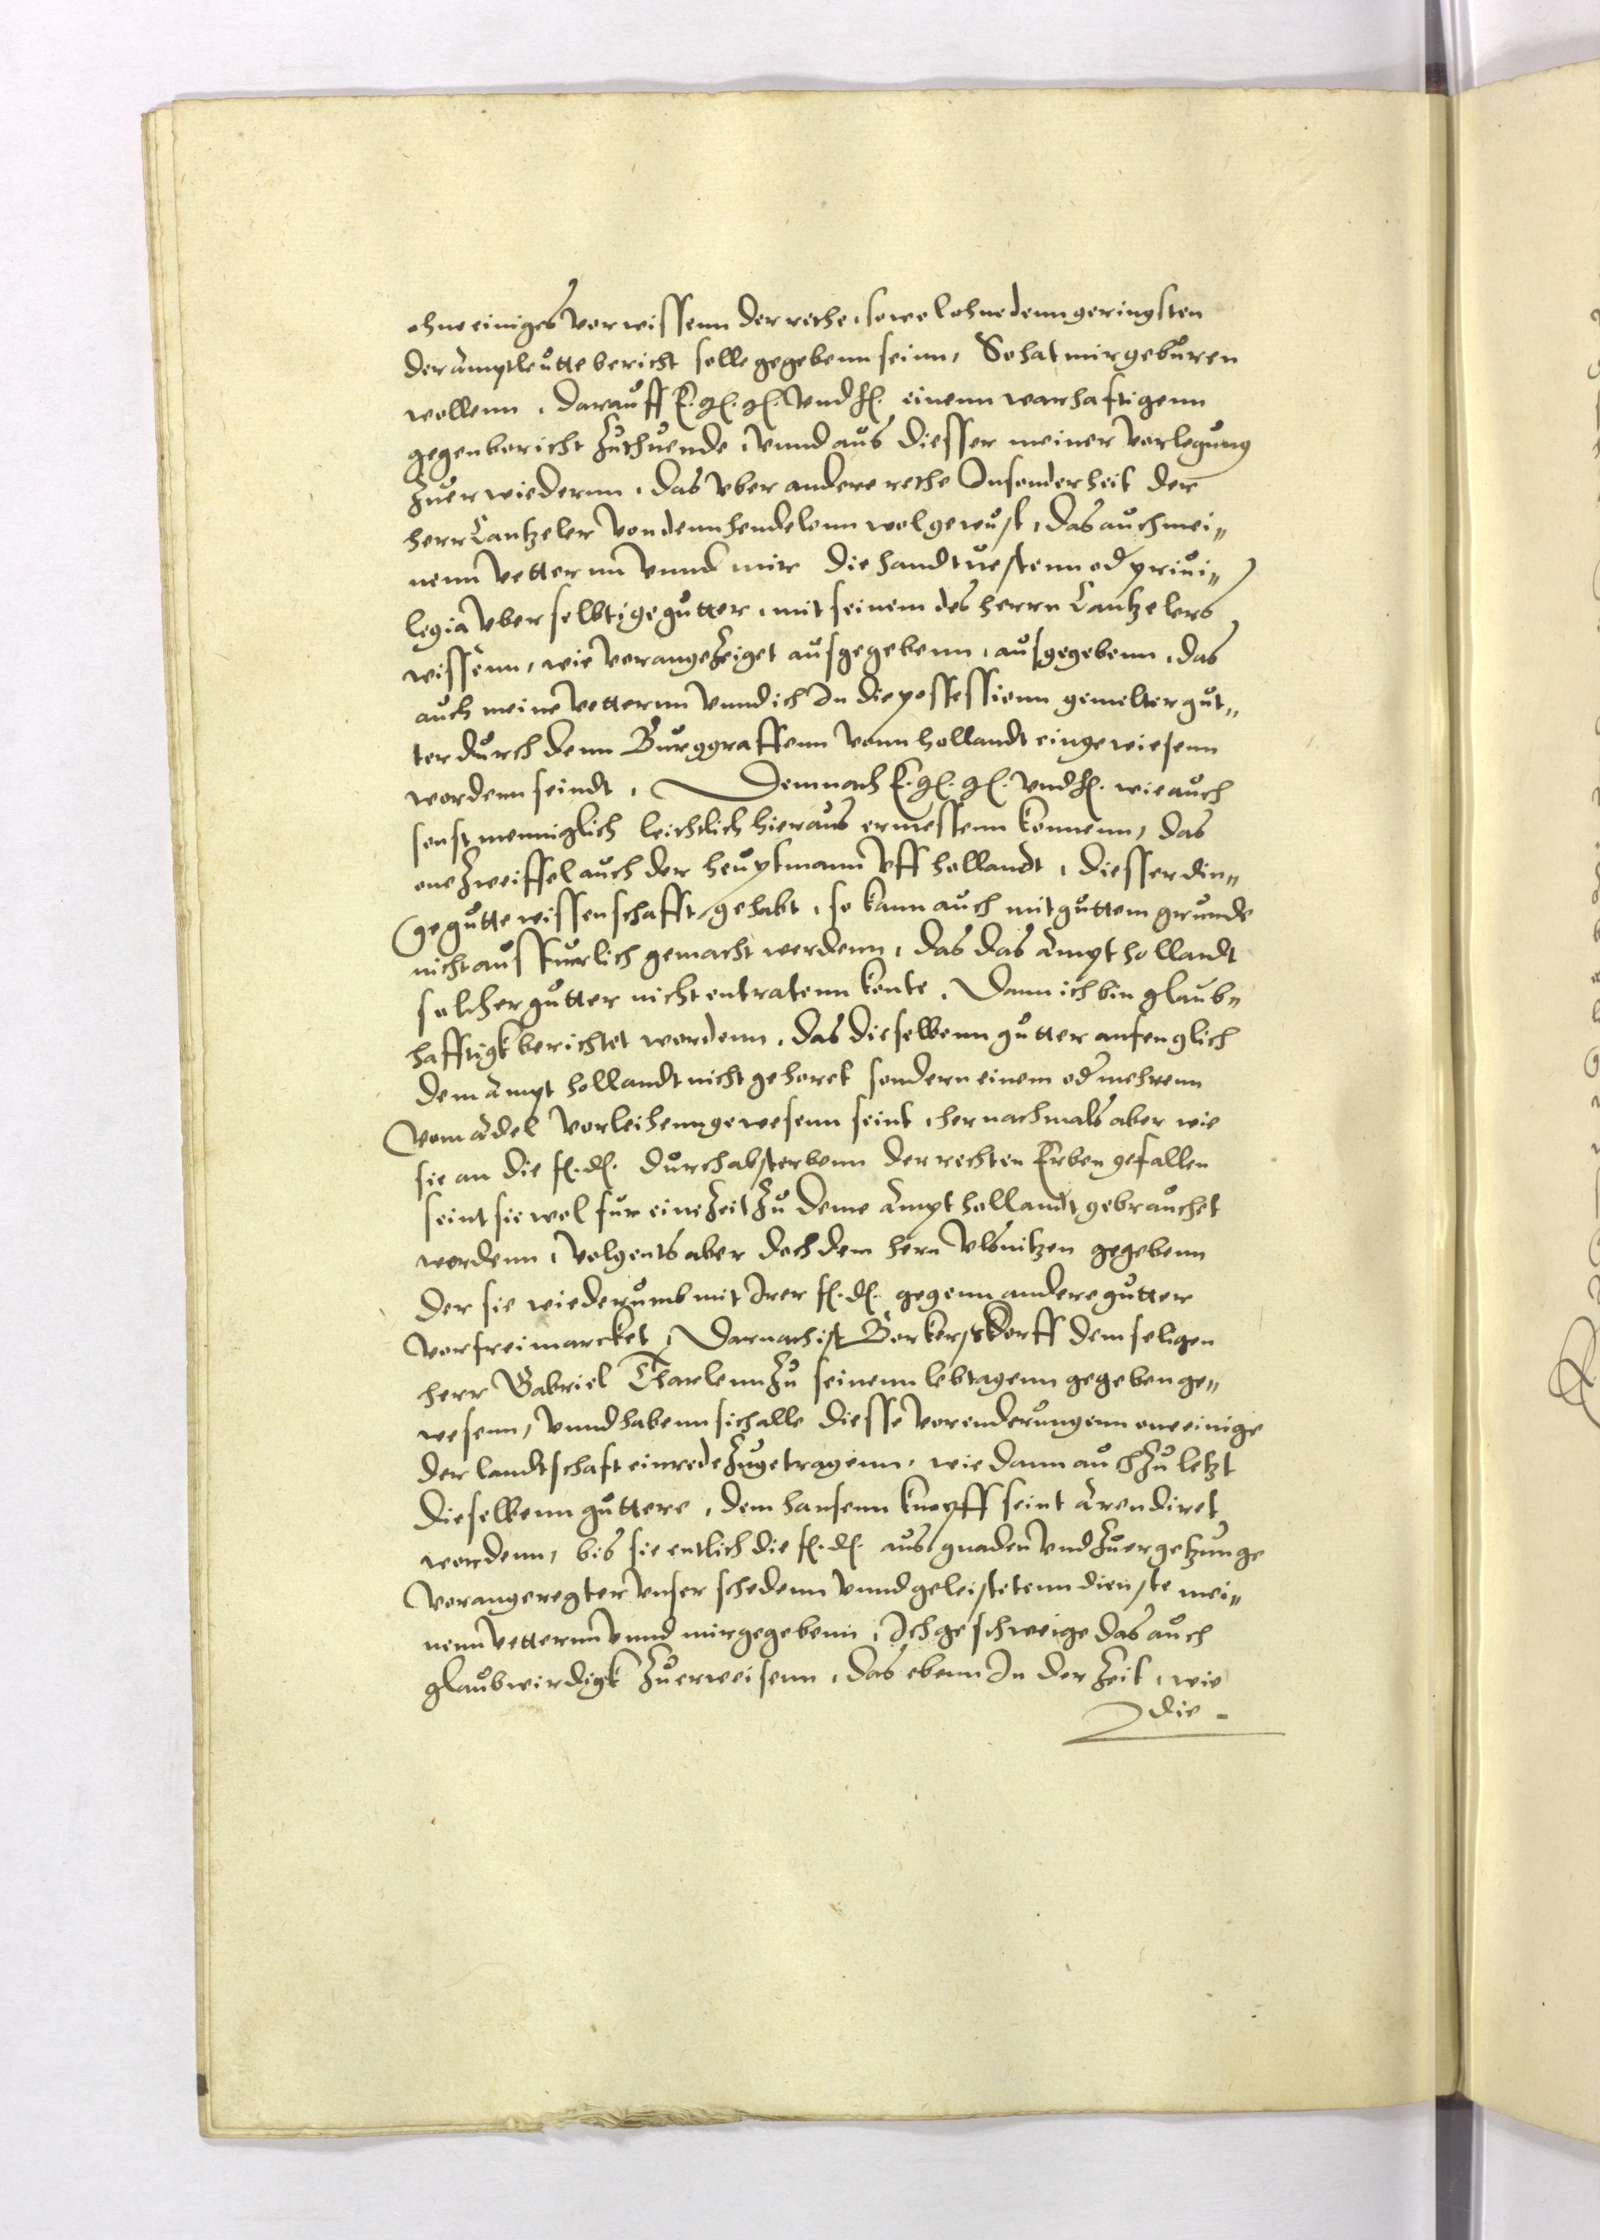 ohne einiges vorwissenn der rethe, sowol ohne denn geringsten
der Amptleutte bericht solle gegebenn seinn, So hat mir geburen
wollenn, darauff E. G. G. vnd H. einenn warhafftigenn
gegenbericht zuthuende, vnnd aus diesser meiner vorlegung
zuerwiedernn, das vber andere rethe Insonderheit der
herr Cantzeler von denn hendelenn wol gewust, das auch mei„
nenn vetternn vnnd mir die handtuestenn od priui„
legia vber selbtige gutter, mit seinem des herrn Cantzelers
wissenn, wie vorangezeiget ausgegebenn, ausgegebenn, das
auch meine vetternn vnnd ich In die possessionn gemelter gut„
ter durch denn Burggraffenn vonn hollandt eingewiesenn
wordenn seindt, Demnach E. G. G. vnd H. wie auch
sonst menniglich leichtlich hieraus ermessenn konnenn, das
one zweiffel auch der heuptmann vff hollandt, diesser din„
ge gutte wissenschafft gehabt, so kann auch mit guttem grunde
nicht ausfurlich gemacht werdenn, das das Ampt hollandt
solcher gutter nicht entratenn konte, Dann ich bin glaub„
hafftigk berichtet wordenn, das dieselbenn gutter anfenglich
dem Ampt hollandt nicht gehoret sondern einem od mehrenn
vom Adel vorleihenn gewesenn seint, hernachmals aber wie
sie an die f. d. durch absterbenn der rechten Erben gefallen
seint sie wol fur eine zeit zu deme Ampt hollandt gebrauchet
wordenn, volgents aber doch dem hern vlsnitzen gegebenn
der sie wiederumb mit Irer f. d. gegenn andere gutter
vorfreimarcket, Darnach ist Borkerstdorff dem seligen
herr Gabriel Tharlenn zu seinenn lebtagenn gegeben ge„
wesenn, vnnd habenn sich alle diesse vorenderungenn one einige
der landtschafft einrede zugetragenn, wie dann auch zu letzt
dieselbenn guttere, dem hansenn kneyff seint Arendiret
wordenn, bis sie entlich die f. d. aus gnaden vnd zuergetzunge
vorangeregter vnser schedenn vnnd geleistetenn dienste mei„
nenn vetternn vnnd mir gegebenn, Ich geschweige das auch
glaubwirdigk zuerweisenn, das ebenn In der zeit, wie
die -